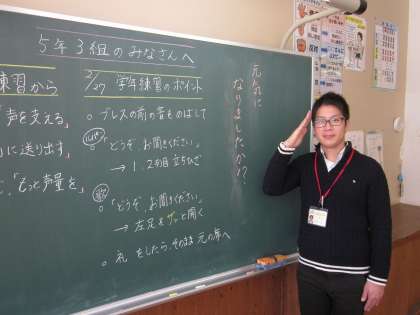 5年3組のみなさんへ
練習から
「声を支える」
に送り出す」
「もっと声量を」
2/27 学年練習のポイント
○ ブレスの前の音ものばして
○「どうぞ お聞きください。」
→ 1、2列目 立ちひざ
○「どうぞ お聞きください。」
→ 左足をザッと開く
○ 礼 をしたら、そのまま 元の席へ
元気に
なりましたか!?